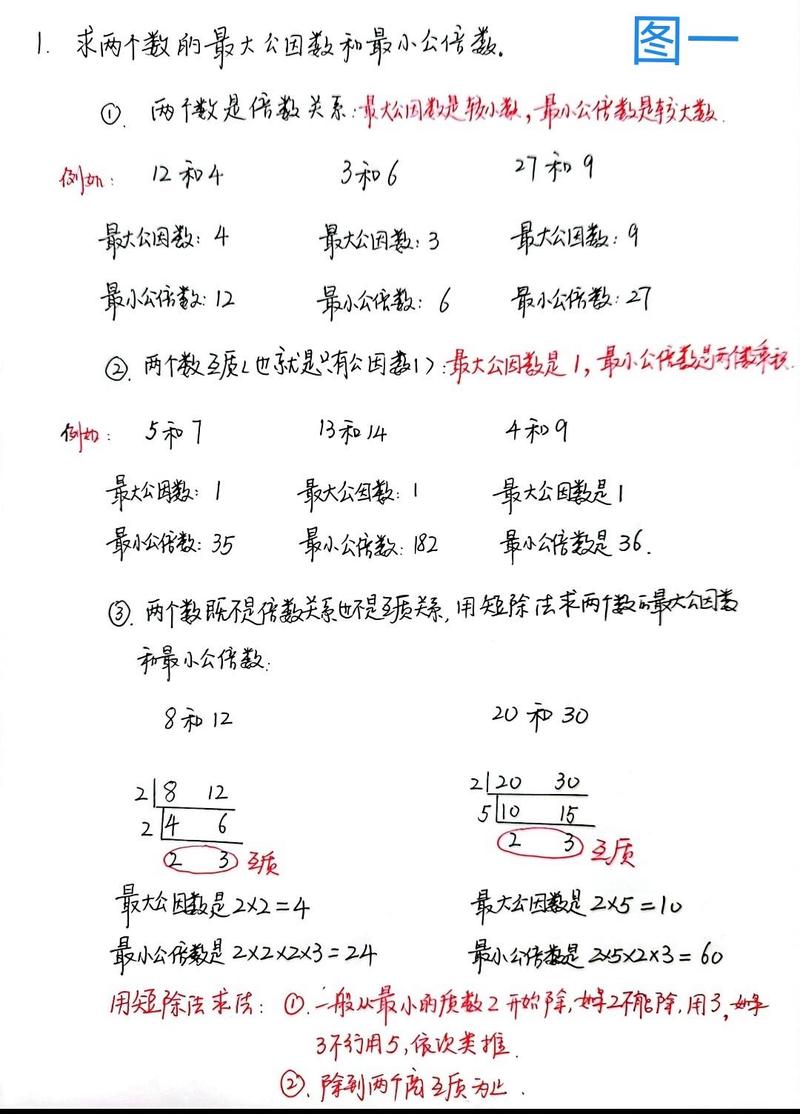 1. 求两个数的最大公因数和最小公倍数.
图一
①. 两个数是倍数关系:最大公因数是较小数,最小公倍数是较大数.
例如: 12和4 3和6 27和9
最大公因数:4 最大公因数:3 最大公因数:9
最小公倍数:12 最小公倍数:6 最小公倍数:27
②. 两个数互质(也就是只有公因数1):最大公因数是1,最小公倍数是两个数乘积.
例如: 5和7 13和14 4和9
最大公因数:1 最大公因数:1 最大公因数是1
最小公倍数:35 最小公倍数:182 最小公倍数是36.
③. 两个数既不是倍数关系也不是互质关系,用短除法求两个数的最大公因数
和最小公倍数:
8和12 20和30
2 8 12 2 20 30
2 4 6 5 10 15
2 3 互质 2 3 互质
最大公因数是2×2=4 最大公因数是2×5=10
最小公倍数是2×2×2×3=24 最小公倍数是2×5×2×3=60
用短除法求法: ①. 一般从最小的质数2开始除,如果2不能除,用3,如果
3不行用5,依次类推.
②. 除到两个商互质为止.